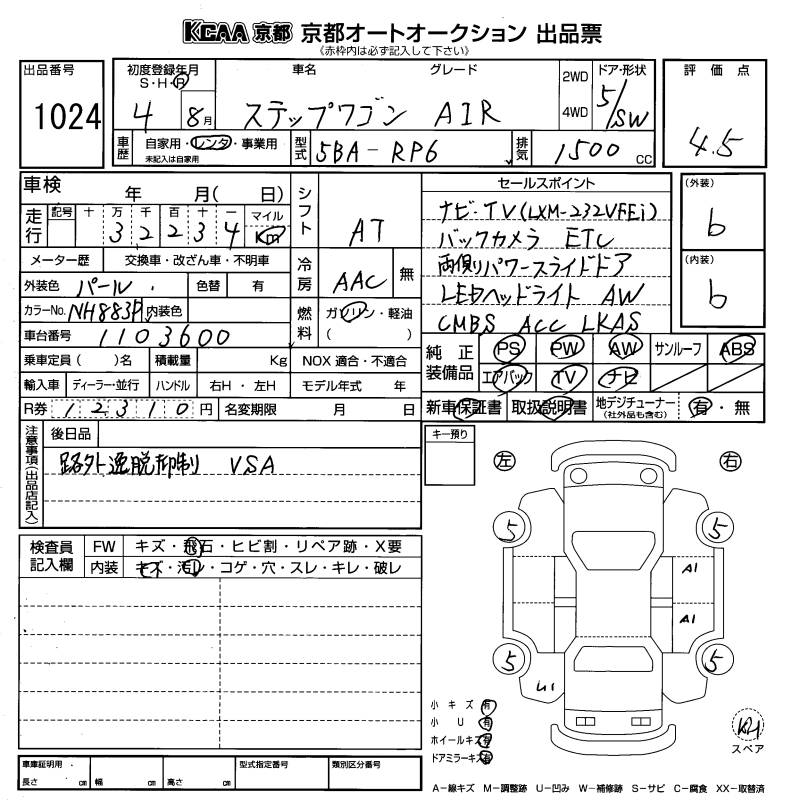 KCAA 京都 京都オートオークション 出品票
《赤枠内は必ず記入して下さい》
出品番号 1024
初度登録年月 S・H・R 4 8月
車名 グレード ステップワゴン AIR
2WD 4WD
ドア・形状 5/SW
評価点 4.5
車歴 自家用・レンタ・事業用 未記入は自家用
型式 5BA-RP6
排気 1500 cc
車検 年 月( 日)
走行 記号 十 万 千 百 十 一 マイル Km
3 2 2 3 4
シフト AT
メーター歴 交換車・改ざん車・不明車
外装色 パール 色替 有
冷房 AAC 無
カラーNo. NH883P 内装色
燃料 ガソリン・軽油 ( )
車台番号 1103600
乗車定員 ( )名 積載量 Kg NOX 適合・不適合
輸入車 ディーラー・並行 ハンドル 右H・左H モデル年式 年
R券 12310円 名変期限 月 日
セールスポイント
ナビ・TV(LXM-232VFEi)
バックカメラ ETC
両側パワースライドドア
LEDヘッドライト AW
CMBS ACC LKAS
(外装) 6
(内装) 6
純正装備品 PS PW AW サンルーフ ABS
エアバック TV ナビ
新車保証書 取扱説明書 地デジチューナー (社外品も含む) 有・無
注意事項(出品店記入)
後日品
路外逸脱抑制 VSA
キー預り
左 右
検査員記入欄 FW キズ・飛石・ヒビ割・リペア跡・X要
内装 キズ・汚レ・コゲ・穴・スレ・キレ・破レ
5 5
A1
A1
5 5
U1
小キズ 有
小U 有
ホイールキズ 有
ドアミラーキズ 有
スペア
車庫証明用 長さ cm 幅 cm 高さ cm 型式指定番号 類別区分番号
A-線キズ M-調整跡 U-凹み W-補修跡 S-サビ C-腐食 XX-取替済